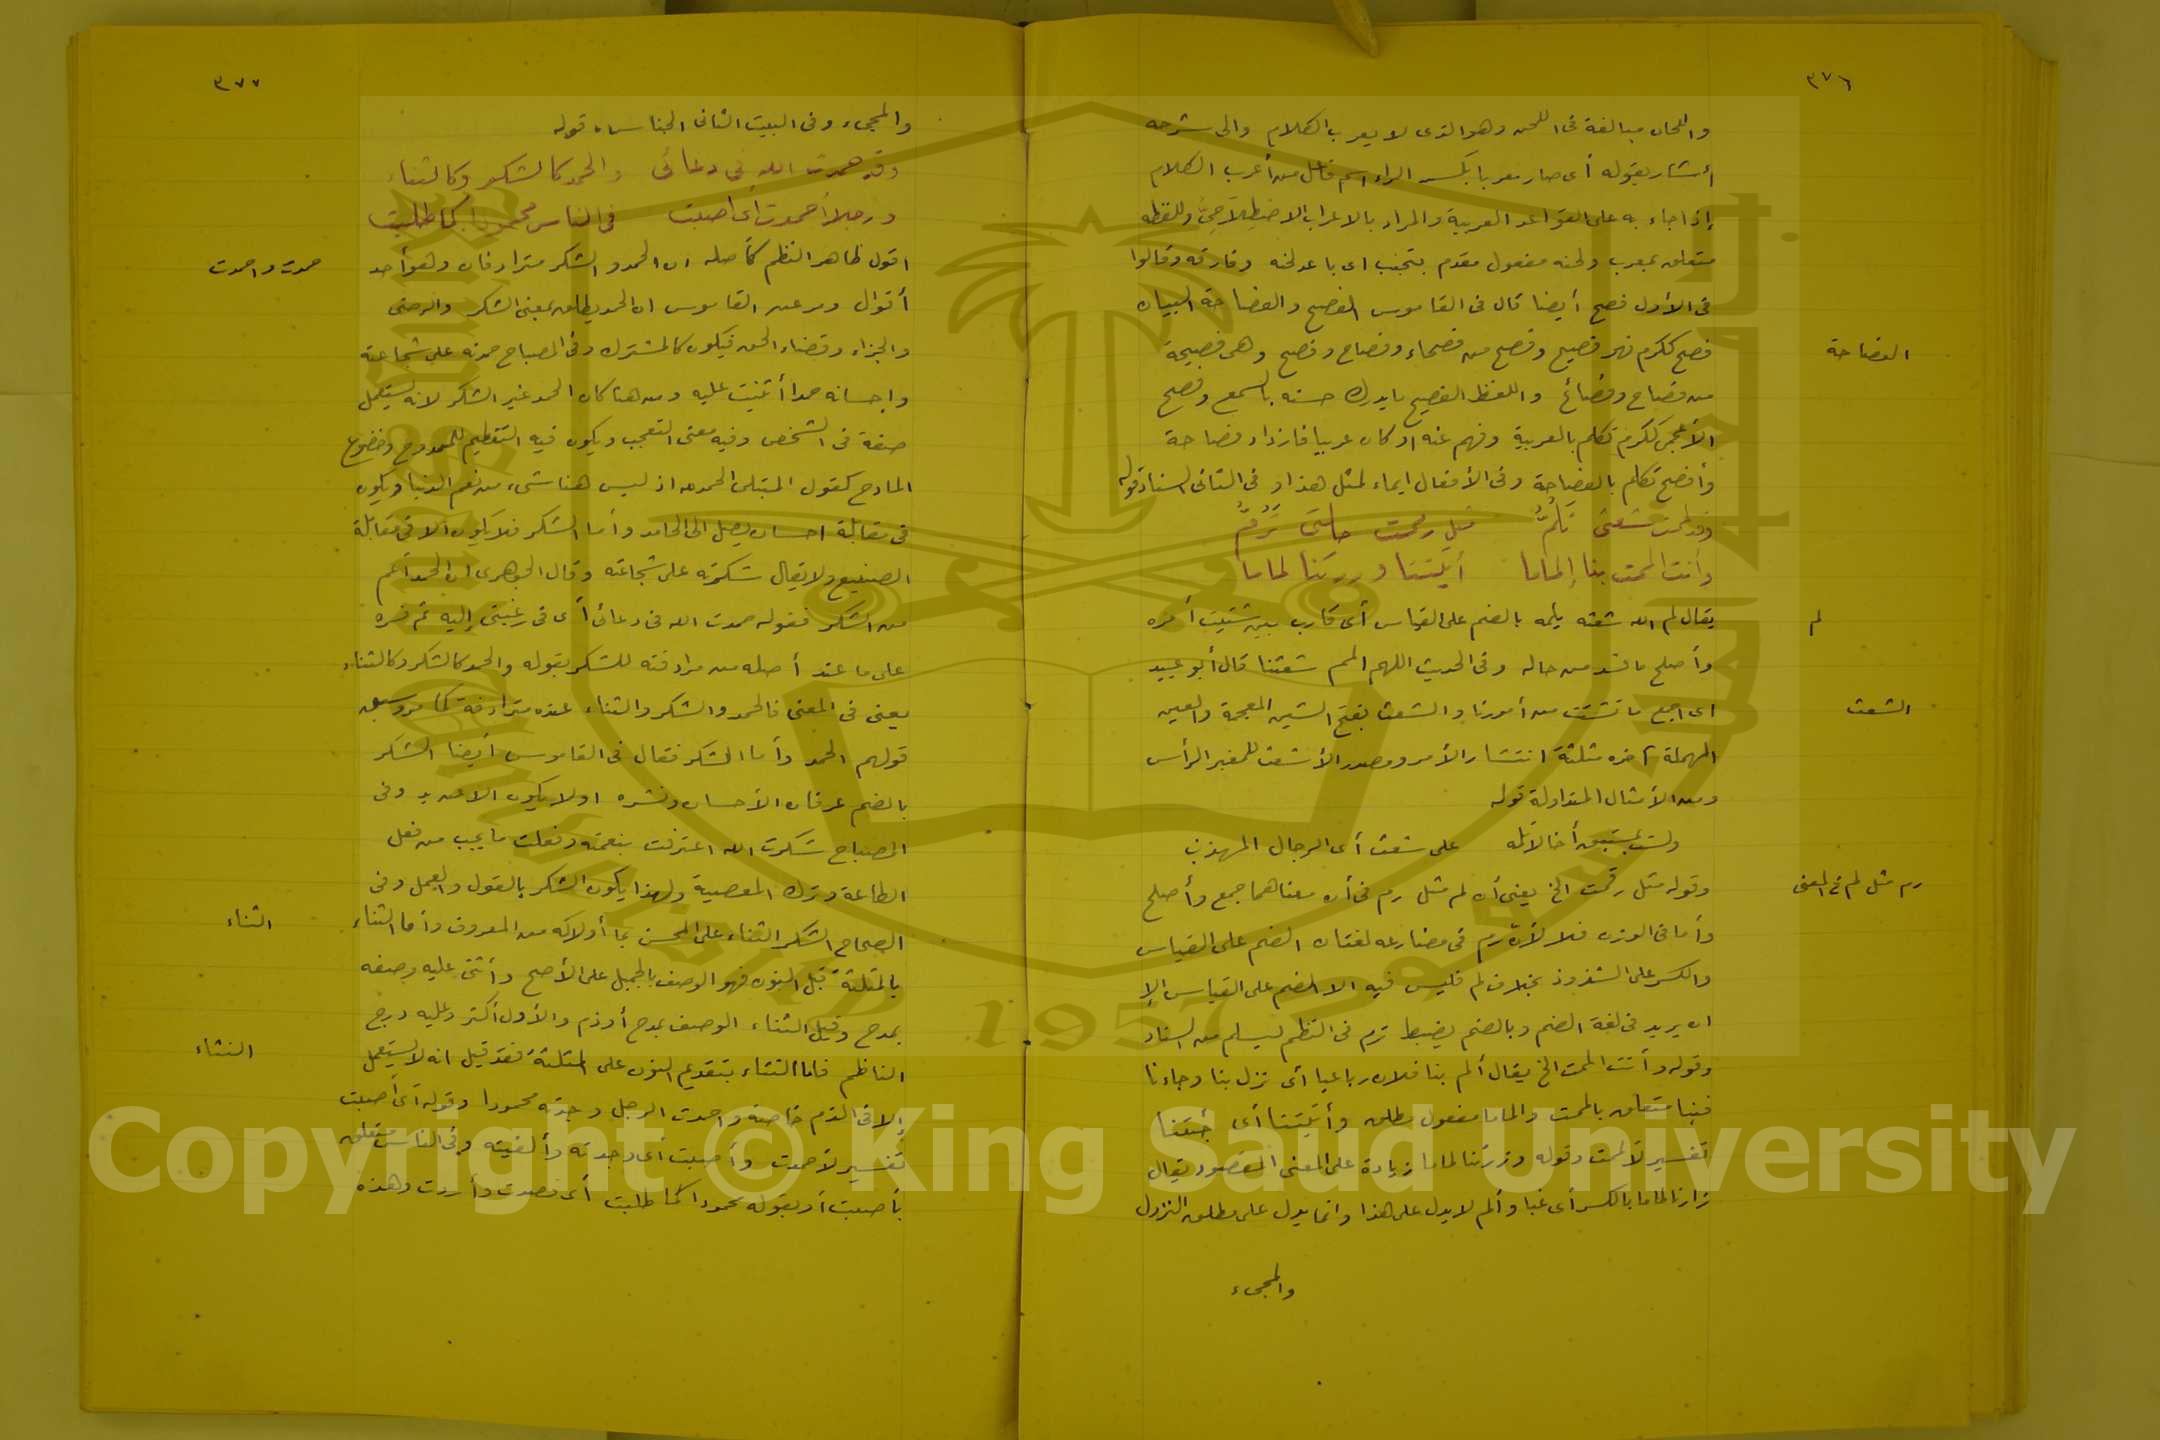 ٣٧٦
واللحان مبالغة فى اللحن وهو الذى لا يعرب الكلام والى شرحه
أشار بقوله أى صار معربا بكسر الراء اسم فاعل من أعرب الكلام
إذا جاء به على القواعد العربية والمراد بالاعراب الاصطلاحى وللفظه
متعلق بمعرب ولحنه مفعول مقدم بتجنب اى باعد لحنه وفارقه وقالوا
فى الأول فصح أيضا قال فى القاموس الفصح والفصاحة البيان
الفصاحة
فصح ككرم فهو فصيح وفصح من فصحاء وفصاح وفصح وهى فصيحة
من فصاح وفصائح واللفظ الفصيح ما يدرك حسنه بالسمع وفصح
الأعجمى ككرم تكلم بالعربية وفهم عنه او كان عربيا فازداد فصاحة
وأفصح تكلم بالفصاحة وفى الأفعال ايماء لمثل هذا وفى الثانى السناد قوله
وقد لممت شعثى تلم مثل رممت حالتى ترم
وأنت ألممت بنا إلماما أتيتنا وزرتنا لماما
لم
يقال لم الله شعثه يلمه بالضم على القياس أى قارب بين شتيت أمره
وأصلح ما فسد من حاله وفى الحديث اللهم المم شعثنا قال أبو عبيد
الشعث
اى اجمع ما تشتت من أمورنا والشعث بفتح الشين المعجمة والعين
المهملة آخره مثلثة انتشار الأمر ومصدر الأشعث للمغبر الرأس
ومن الأمثال المتداولة قوله
ولست بمستبق أخا لا تلمه على شعث أى الرجال المهذب
رم مثل لم فى المعنى
وقوله مثل رممت الخ يعنى أن لم مثل رم فى أن معناهما جمع وأصلح
وأما فى الوزن فلا لأن رم فى مضارعه لغتان الضم على القياس
والكسر على الشذوذ بخلاف لم فليس فيه الا الضم على القياس إلا
ان يريد فى لغة الضم وبالضم يضبط ترم فى النظم ليسلم من السناد
وقوله وأنت ألممت الخ يقال ألم بنا فلان رباعيا أى نزل بنا وجاءنا
فبنا متعلق بألممت والماما مفعول مطلق وأتيتنا أى جئتنا
تفسير لألممت وقوله وزرتنا لماما زيادة على المعنى المقصود يقال
زارنا لماما بالكسر أى غبا وألم لا يدل على هذا وانما يدل على مطلق النزول
والمجىء
٣٧٧
والمجىء وفى البيت الثانى الجناس قوله
وقد حمدت الله فى دعائى والحمد كالشكر وكالثناء
ورجلا أحمدت أى أصبت فى الناس محمودا كما طلبت
حمدت واحمدت
اقول ظاهر النظم كأصله ان الحمد والشكر مترادفان وهو أحد
أقوال ومر عن القاموس ان الحمد يطلق بمعنى الشكر والرضى
والجزاء وقضاء الحق فيكون كالمشترك وفى المصباح حمدته على شجاعته
واحسانه حمدا أثنيت عليه ومن هنا كان الحمد غير الشكر لانه يستعمل
صفة فى الشخص وفيه معنى التعجب ويكون فيه التعظيم للممدوح وخضوع
المادح كقول المبتلى الحمد لله اذ ليس هنا شىء من نعم الدنيا ويكون
فى مقابلة احسان يصل الى الحامد وأما الشكر فلا يكون الا فى مقابلة
الصنيع ولا يقال شكرته على شجاعته وقال الجوهرى ان الحمد أعم
من الشكر فقوله حمدت الله فى دعائى أى فى رغبتى إليه ثم فسره
على ما عند أصله من مرادفته للشكر بقوله والحمد كالشكر وكالثناء
يعنى فى المعنى فالحمد والشكر والثناء عنده مترادفة كما مر وسبق
قولهم الحمد وأما الشكر فقال فى القاموس أيضا الشكر
بالضم عرفان الأحسان ونشره اولا يكون الا عن يد وفى
المصباح شكرت الله اعترفت بنعمته وفعلت ما يجب من فعل
الطاعة وترك المعصية ولهذا يكون الشكر بالقول والعمل وفى
الثناء
الصحاح الشكر الثناء على المحسن بما أولاكه من المعروف وأما الثناء
بالمثلثة قبل النون فهو الوصف بالجميل على الأصح وأثنى عليه وصفه
بمدح وقيل الثناء الوصف بمدح أو ذم والأول أكثر وعليه درج
النثاء
الناظم فاما النثاء بتقديم النون على المثلثة فقد قيل انه لا يستعمل
إلا فى الذم خاصة واحمدت الرجل وجدته محمودا وقوله أى أصبت
تفسير لأحمدت وأصبت أى وجدته وألفيته وفى الناس متعلق
بأصبت أو بقوله محمودا كما طلبت أى قصدت وأردت وهذه
1957
Copyright © King Saud University